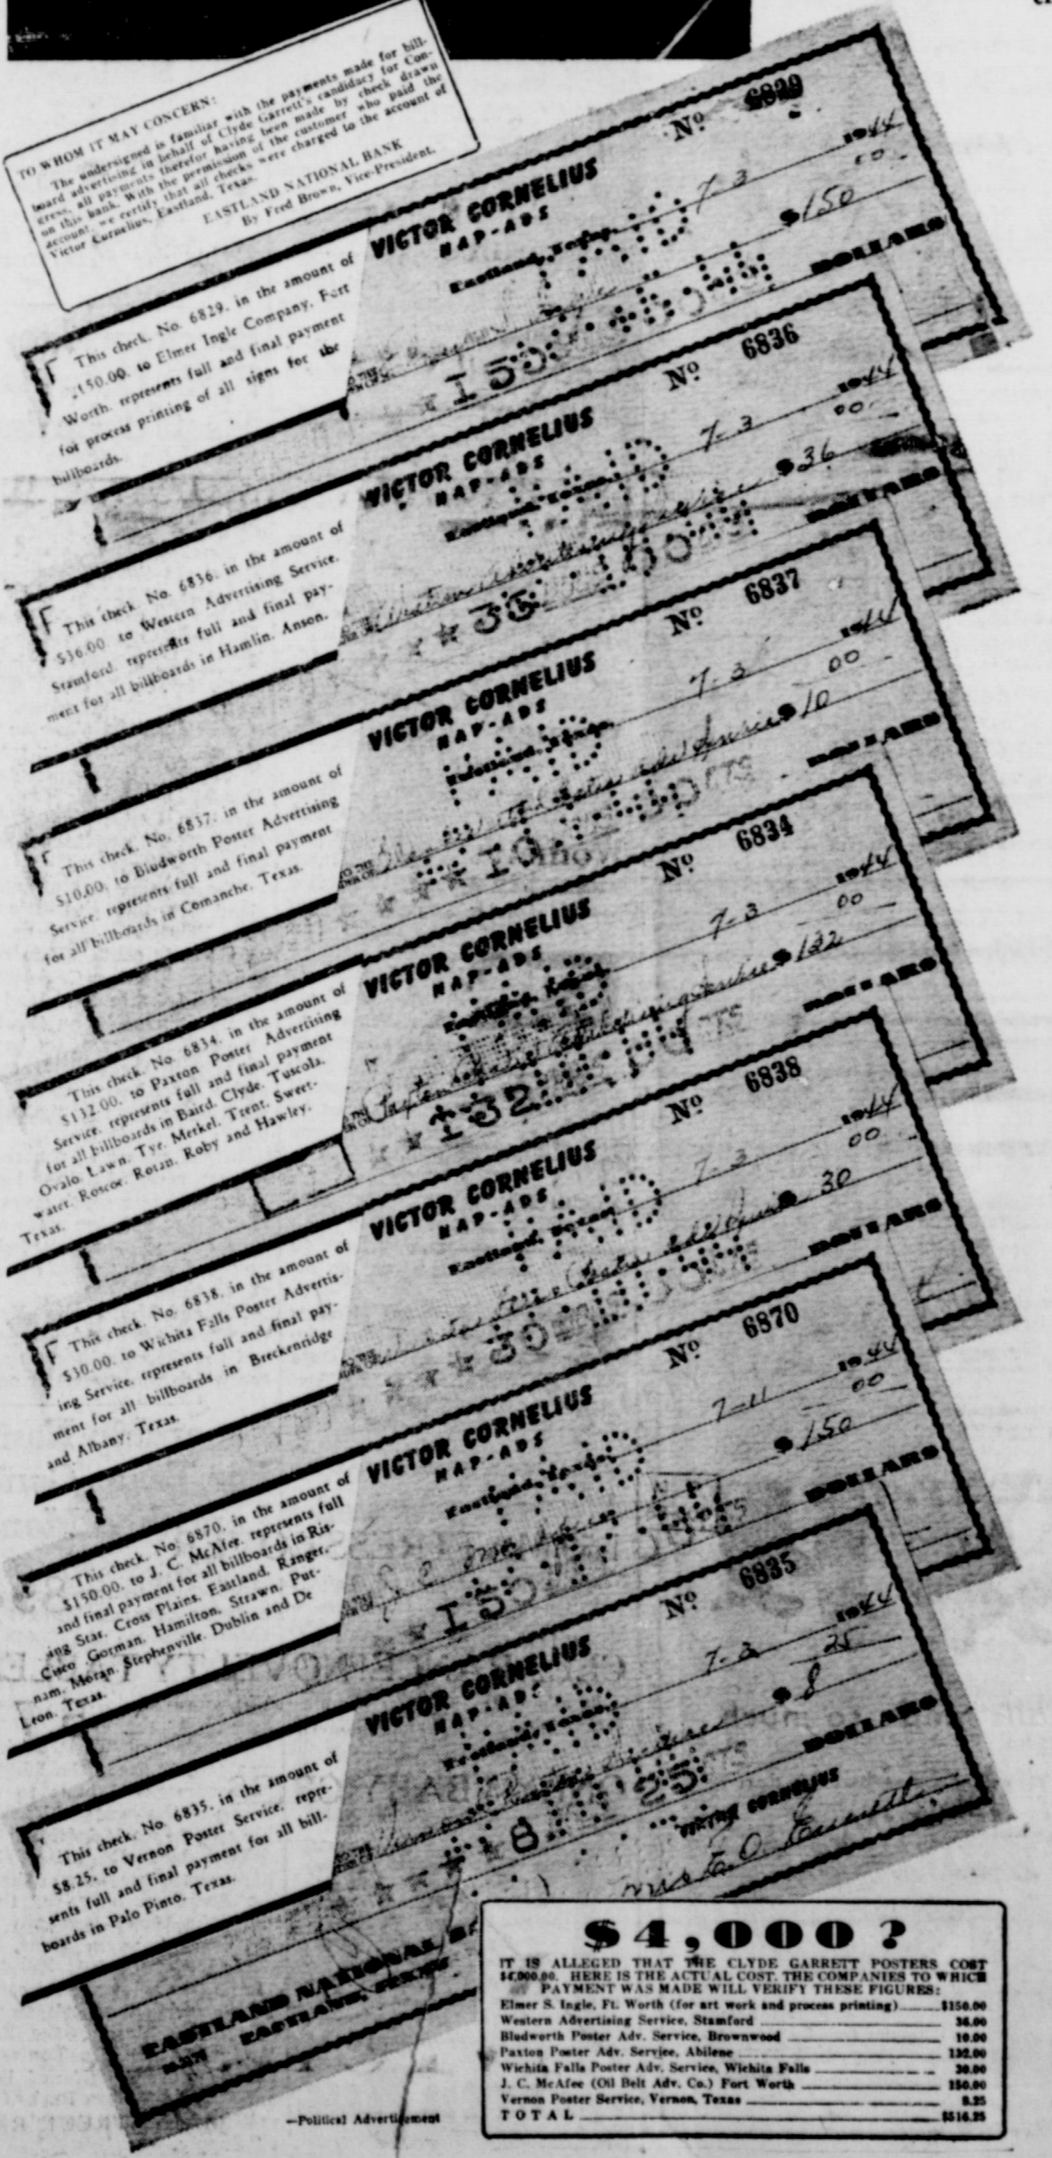 TO WHOM IT MAY CONCERN:
The undersigned is familiar with the payments made for bill-
board advertising in behalf of Clyde Garrett's candidacy for Con-
gress, all payments therefor having been made by check drawn
on this bank. With the permission of the customer who paid the
account, we certify that all checks were charged to the account of
Victor Cornelius, Eastland, Texas.
EASTLAND NATIONAL BANK
By Fred Brown, Vice-President.
This check, No. 6829, in the amount of
$150.00, to Elmer Ingle Company, Fort
Worth, represents full and final payment
for process printing of all signs for the
billboards.
VICTOR CORNELIUS
MAP-ADS
Eastland, Texas,
No 6829
7-3 1944
$150 00
DOLLARS
This check, No. 6836, in the amount of
$36.00, to Western Advertising Service,
Stamford, represents full and final pay-
ment for all billboards in Hamlin, Anson,
VICTOR CORNELIUS
MAP-ADS
Eastland, Texas,
No 6836
7-3 1944
$36 00
DOLLARS
This check, No. 6837, in the amount of
$10.00, to Bludworth Poster Advertising
Service, represents full and final payment
for all billboards in Comanche, Texas.
VICTOR CORNELIUS
MAP-ADS
Eastland, Texas,
No 6837
7-3 1944
$10 00
DOLLARS
This check, No. 6834, in the amount of
$132.00, to Paxton Poster Advertising
Service, represents full and final payment
for all billboards in Baird, Clyde, Tuscola,
Ovalo, Lawn, Tye, Merkel, Trent, Sweet-
water, Roscoe, Rotan, Roby and Hawley,
Texas.
VICTOR CORNELIUS
MAP-ADS
No 6834
7-3 1944
$132 00
DOLLARS
This check, No. 6838, in the amount of
$30.00, to Wichita Falls Poster Advertis-
ing Service, represents full and final pay-
ment for all billboards in Breckenridge
and Albany, Texas.
VICTOR CORNELIUS
MAP-ADS
Eastland, Texas
No 6838
7-3 1944
$30 00
DOLLARS
This check, No. 6870, in the amount of
$150.00, to J. C. McAfee, represents full
and final payment for all billboards in Ris-
ing Star, Cross Plains, Eastland, Ranger,
Cisco, Gorman, Hamilton, Strawn, Put-
nam, Moran, Stephenville, Dublin and De
Leon, Texas.
VICTOR CORNELIUS
MAP-ADS
Eastland, Texas,
No 6870
7-11 1944
$150 00
DOLLARS
This check, No. 6835, in the amount of
$8.25, to Vernon Poster Service, repre-
sents full and final payment for all bill-
boards in Palo Pinto, Texas.
VICTOR CORNELIUS
MAP-ADS
Eastland, Texas,
No 6835
7-3 1944
$8 25
DOLLARS
VICTOR CORNELIUS
EASTLAND NATIONAL BA
EASTLAND, TEXAS
$4,000?
IT IS ALLEGED THAT THE CLYDE GARRETT POSTERS COST
$4,000.00. HERE IS THE ACTUAL COST. THE COMPANIES TO WHICH
PAYMENT WAS MADE WILL VERIFY THESE FIGURES:
Elmer S. Ingle, Ft. Worth (for art work and process printing) $150.00
Western Advertising Service, Stamford 36.00
Bludworth Poster Adv. Service, Brownwood 10.00
Paxton Poster Adv. Service, Abilene 132.00
Wichita Falls Poster Adv. Service, Wichita Falls 30.00
J. C. McAfee (Oil Belt Adv. Co.) Fort Worth 150.00
Vernon Poster Service, Vernon, Texas 8.25
TOTAL $516.25
—Political Advertisement